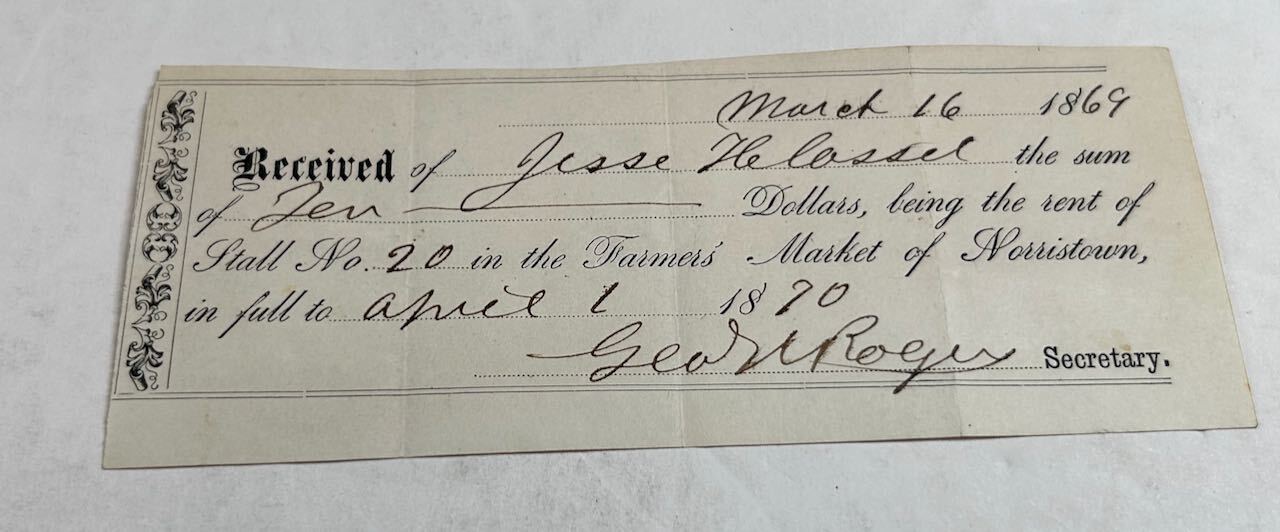 March 16 1869
Received of Jesse the sum
of Ten Dollars, being the rent of
Stall No. 20 in the Farmers' Market of Norristown,
in full to April 1 1870
Geo Rogers Secretary.